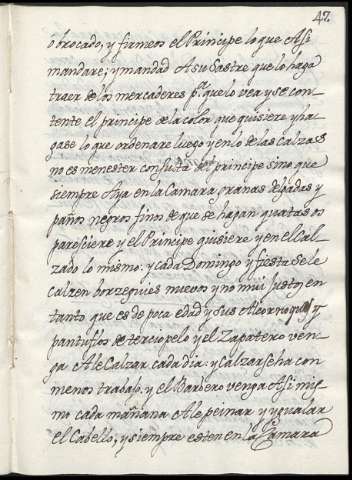 42
o brocado, y firmeos el Principe lo que Assi
mandare; y mandad A su Sastre que lo haga
traer de los mercaderes pa. que lo vea y se con-
tente el principe de la color que quisiere y ha-
gase lo que ordenare luego y en lo de las calzas
no es menester consulta del principe sino que
siempre Aya en la Camara granas delgadas y
paños negros finos de que se hagan quantas os
paresciere y el Principe quisiere y en el Cal-
zado lo mismo: y cada Domingo y fiesta se le
calzen borzeguies nuevos y no mui justos en
tanto que es de poca edad y sus Alcorques y
pantuflos de terciopelo y el Zapatero ven-
ga A le Calzar cada dia: y calzarseha con
menos trabajo. y el Barbero venga Assi mis-
mo cada mañana A le peinar y ygualar
el Cabello, y siempre esten en la Camara